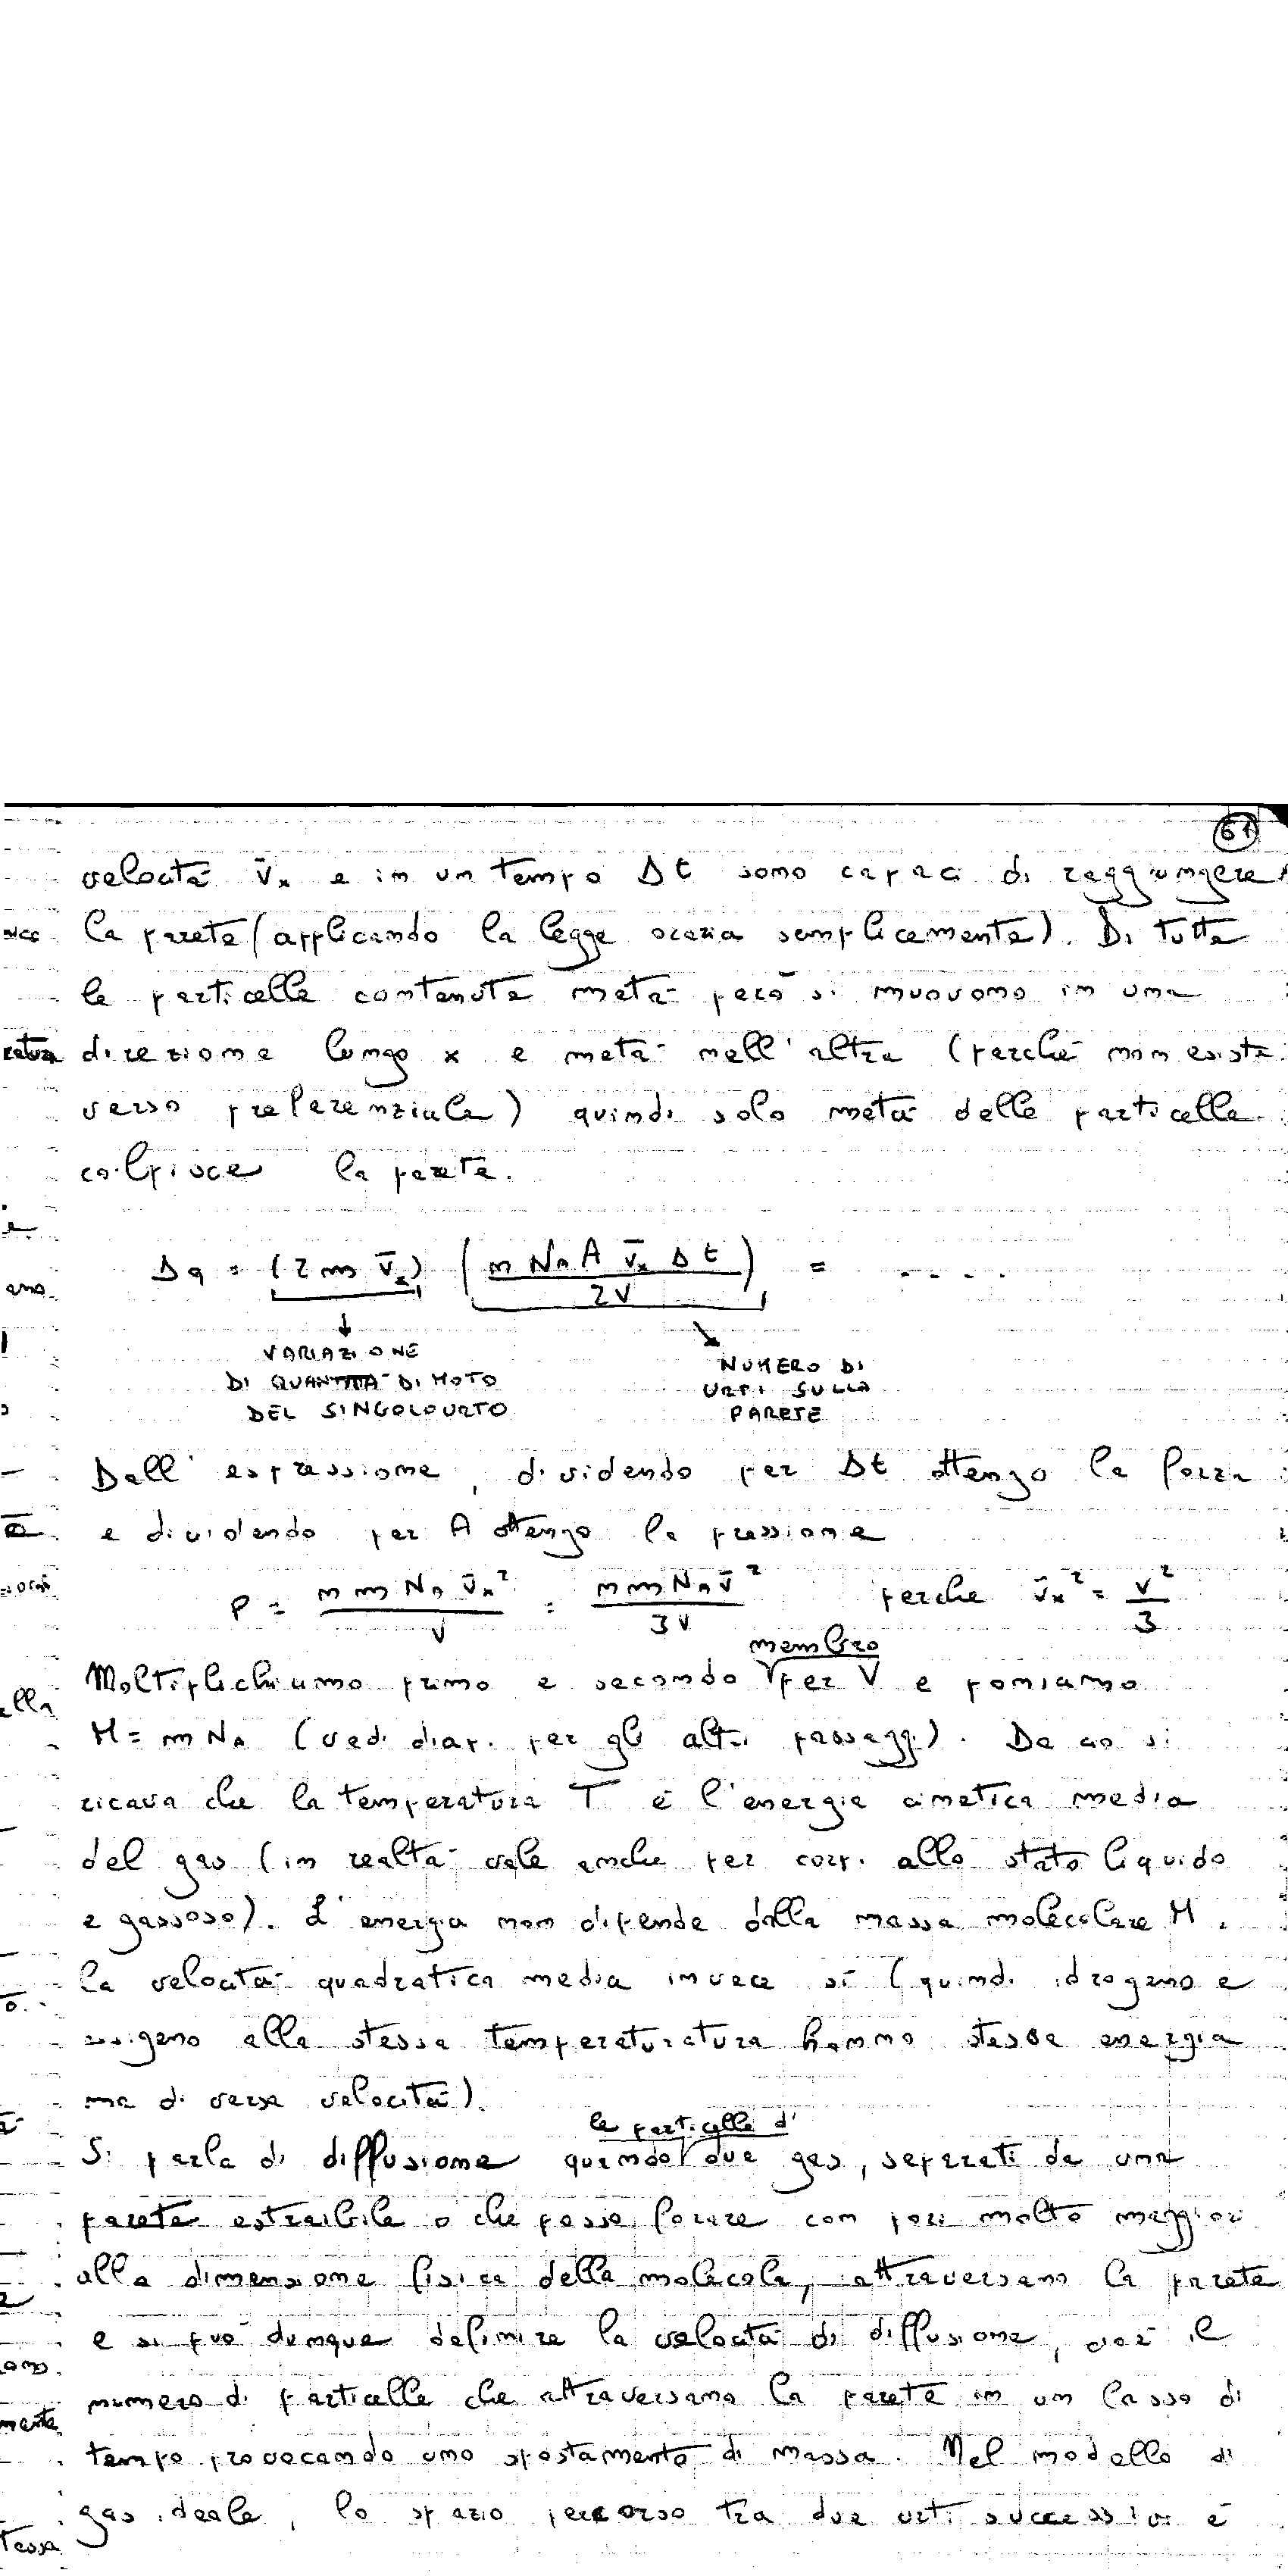 61
velocità v̄ₓ e in un tempo Δt sono capaci di raggiungere
la parete (applicando la legge oraria semplicemente). Di tutte
le particelle contenute metà però si muovono in una
direzione lungo x e metà nell'altra (perché non esiste
verso preferenziale) quindi solo metà delle particelle
colpisce la parete.
Δq = (2m v̄ₓ) (n Nₐ A v̄ₓ Δt / 2V) = .....
VARIAZIONE
DI QUANTITÀ DI MOTO
DEL SINGOLO URTO
NUMERO DI
URTI SULLA
PARETE
Dall'espressione, dividendo per Δt ottengo la forza
e dividendo per A ottengo la pressione
P = n m Nₐ v̄ₓ² / V = n m Nₐ v̄² / 3V perche v̄ₓ² = v² / 3
membro
Moltiplichiamo primo e secondo per V e poniamo
M = m Nₐ (vedi diap. per gli altri passaggi). Da ciò si
ricava che la temperatura T è l'energia cinetica media
del gas (in realtà vale anche per corpi allo stato liquido
e gassoso). L'energia non dipende dalla massa molecolare M,
la velocità quadratica media invece sì (quindi idrogeno e
ossigeno alla stessa temperaturatura hanno stessa energia
ma diversa velocità).
le particelle di
Si parla di diffusione quando due gas, separati da una
parete estraibile o che possa forare con pori molto maggiori
alla dimensione fisica della molecola, attraversano la parete
e si può dunque definire la velocità di diffusione, cioè il
numero di particelle che attraversano la parete in un lasso di
tempo provocando uno spostamento di massa. Nel modello di
gas ideale, lo spazio percorso tra due urti successivi è